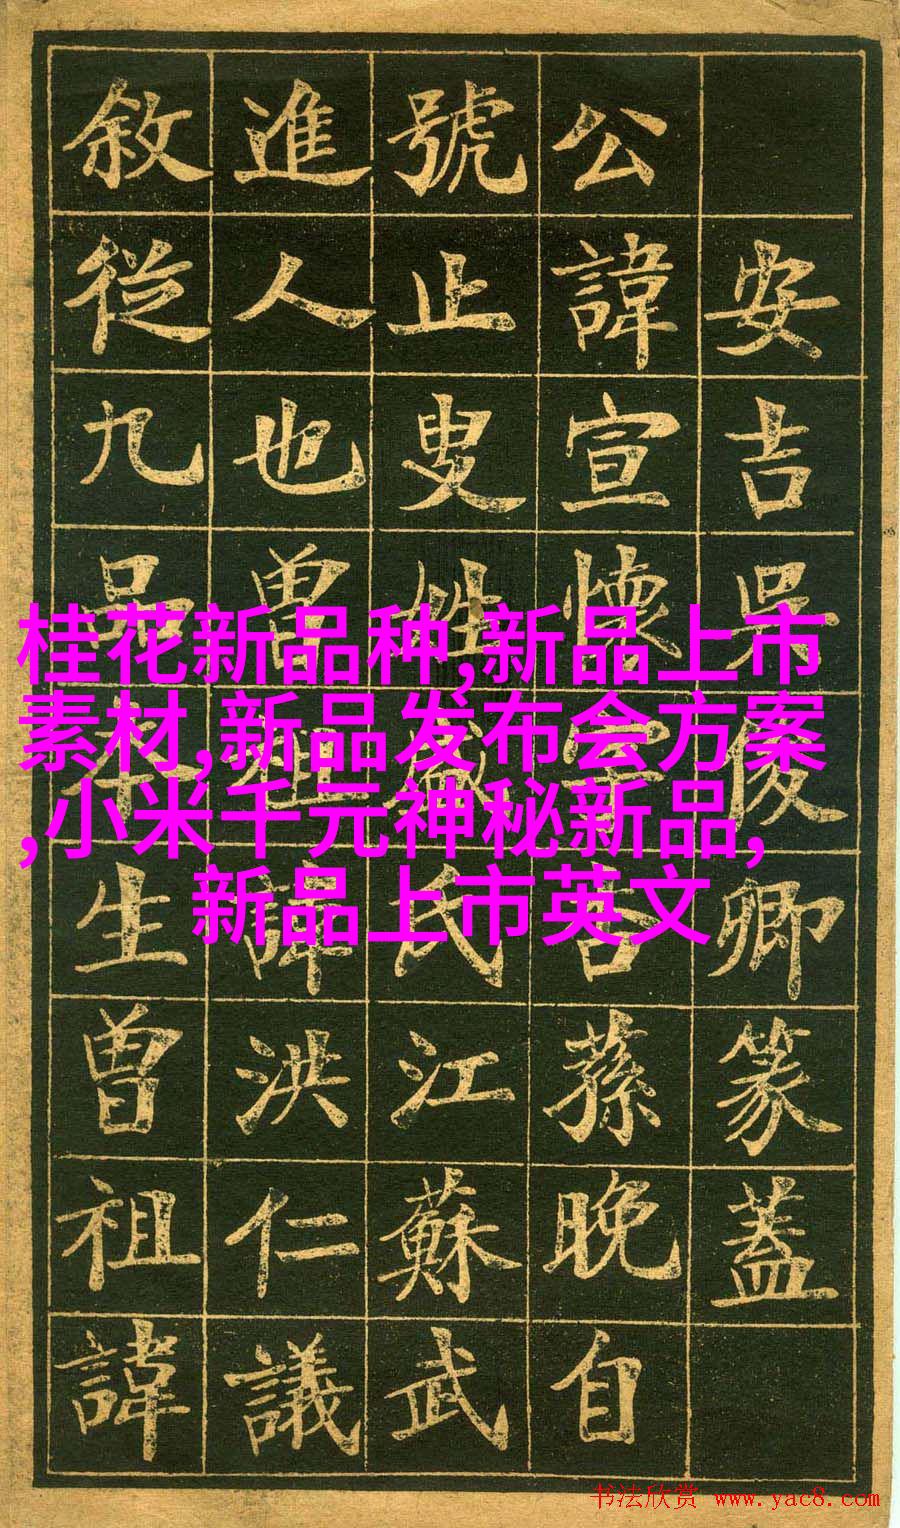 安吉吳俊卿篆蓋
公諱宣懷字杏蓀晚自
號止叟姓盛氏江蘇武
進人也曾祖諱洪仁議
敘從九品本生曾祖諱
桂花新品种,新品上市
素材,新品发布会方案
,小米千元神秘新品,
新品上市英文
书法欣赏 www.yac8.com